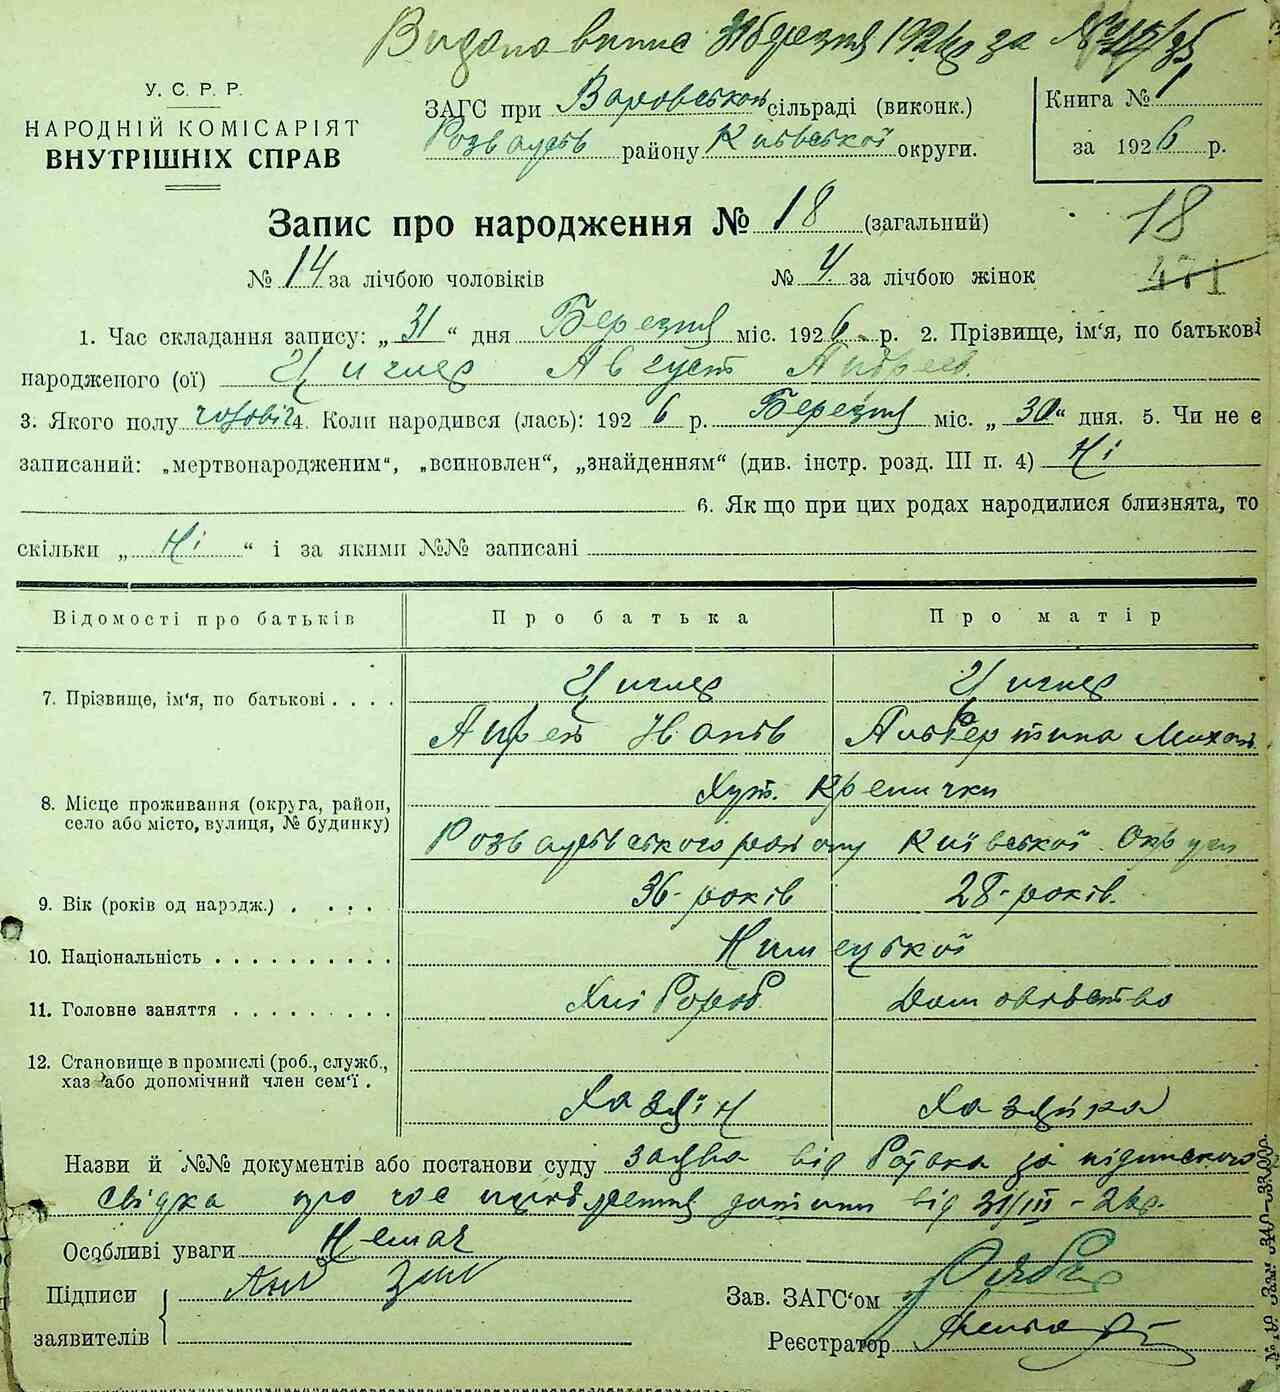 Видано випис 31 березня 1926 за №
У. С. Р. Р.
НАРОДНІЙ КОМІСАРІЯТ
ВНУТРІШНІХ СПРАВ
ЗАГС при Варовській сільраді (виконк.)
Розважів району Київської округи.
Книга № 1
за 1926 р.
Запис про народження № 18 (загальний)
18
№ 14 за лічбою чоловіків № 4 за лічбою жінок
471
1. Час складання запису: „ 31 “ дня Березня міс. 1926 р. 2. Прізвище, ім‘я, по батькові
народженого (ої) Циглер Август Андреев.
3. Якого полу чоловіч 4. Коли народився (лась): 192 6 р. Березня міс. „ 30 “ дня. 5. Чи не є
записаний: „мертвонародженим“, „всиновлен“, „знайденням“ (див. інстр. розд. III п. 4) Ні
6. Як що при цих родах народилися близнята, то
скільки „ Ні “ і за якими №№ записані
Відомості про батьків Про батька Про матір
7. Прізвище, ім‘я, по батькові . . . . Циглер Циглер
Андрей Альбертина
8. Місце проживання (округа, район, Хут. Кремички
село або місто, вулиця, № будинку) Розважівського району Київської Округи
9. Вік (років од народж.) . . . . 36 - років 28 - років.
10. Національність . . . . . . . . . . Нимецької
11. Головне заняття . . . . . . . . . Хлібороб Домовлвство
12. Становище в промислі (роб., служб.,
хаз або допомічний член сем‘ї . Хазяїн Хазяйка
Назви й №№ документів або постанови суду заява від батька за підпискою
свідка про час народження дитини від 31/III - 26 р.
Особливі уваги Немає
Підписи
заявителів
Зав. ЗАГС‘ом
Реєстратор